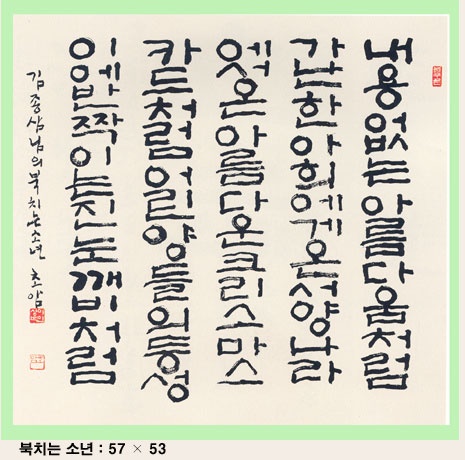 내용없는아름다움처럼
가난한아희에게온서양나라
에서온아름다운크리스마스
카드처럼어린양들의등성
이에반짝이는진눈깨비처럼
김종삼님의북치는소년 초암
북치는 소년 : 57 × 53